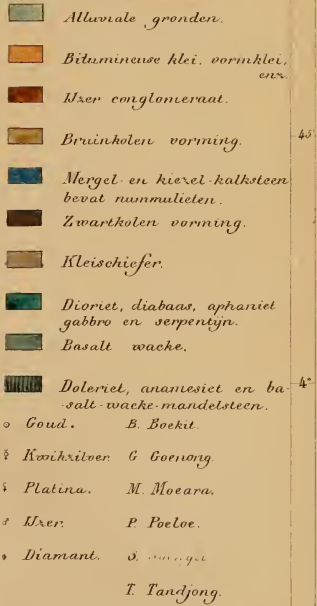 Alluviale gronden.
Bitumineuse klei, vormklei,
enz.
IJzer conglomeraat.
Bruinkolen vorming.
45'
Mergel- en kiezel-kalksteen
bevat nummulieten.
Zwartkolen vorming.
Kleischiefer.
Dioriet, diabaas, aphaniet
gabbro en serpentijn.
Basalt wacke.
Doleriet, anamesiet en ba-
-salt-wacke-mandelsteen.
4°
Goud. B. Boekit.
Kwikzilver. G Goenong.
Platina. M. Moeara.
IJzer. P. Poeloe.
Diamant. S.
T. Tandjong.